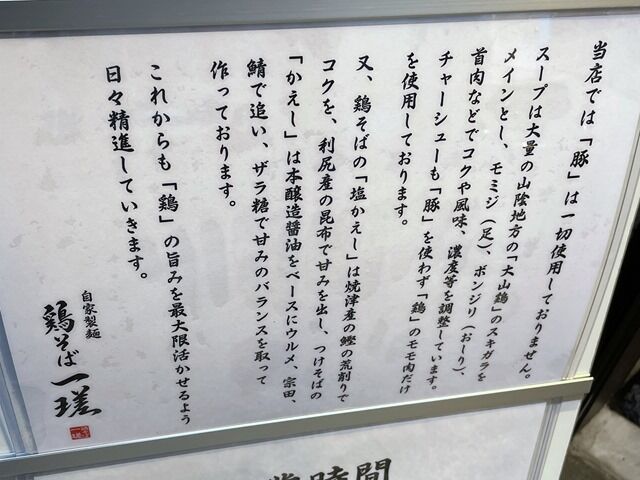 当店では「豚」は一切使用しておりません。
スープは大量の山陰地方の「大山鶏」のスキガラを
メインとし、モミジ（足）、ボンジリ（おしり）、
首肉などでコクや風味、濃度等を調整しています。
チャーシューも「豚」を使わず「鶏」のモモ肉だけ
を使用しております。
又、鶏そばの「塩かえし」は焼津産の鰹の荒削りで
コクを、利尻産の昆布で甘みを出し、つけそばの
「かえし」は本醸造醤油をベースにウルメ、宗田、
鯖で追い、ザラ糖で甘みのバランスを取って
作っております。
これからも「鶏」の旨みを最大限活かせるよう
日々精進していきます。
自家製麺
鶏そば一瑳
時間